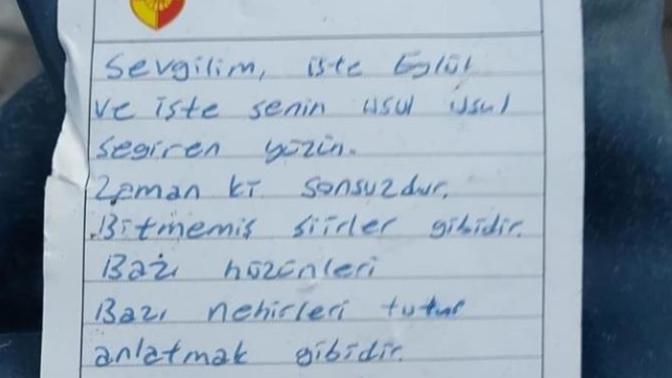 Sevgilim, işte Eylül
ve işte senin usul usul
segiren yüzün.
Zaman ki sonsuzdur.
Bitmemiş şiirler gibidir.
Bazı hüzünleri
Bazı nehirleri tutup
anlatmak gibidir.